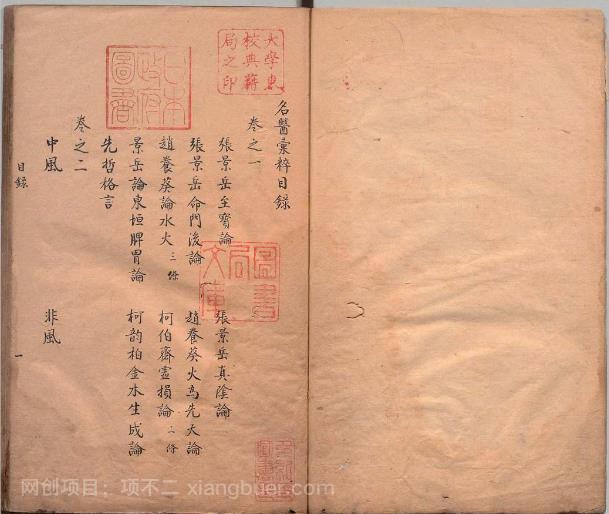 名醫彙粹目錄
卷之一
張景岳至寶論
張景岳真陰論
張景岳命門後論
趙養葵火為先天論
趙養葵論水火三條
柯伯齋虛損論二條
景岳論東垣脾胃論
柯韵柏金水生成論
先哲格言
卷之二
中風
非風
目錄
一
大學東
校典籍
局之印
日本
政府
圖書
圖書
局
文庫
网创项目：项不二 xiangbuer.com